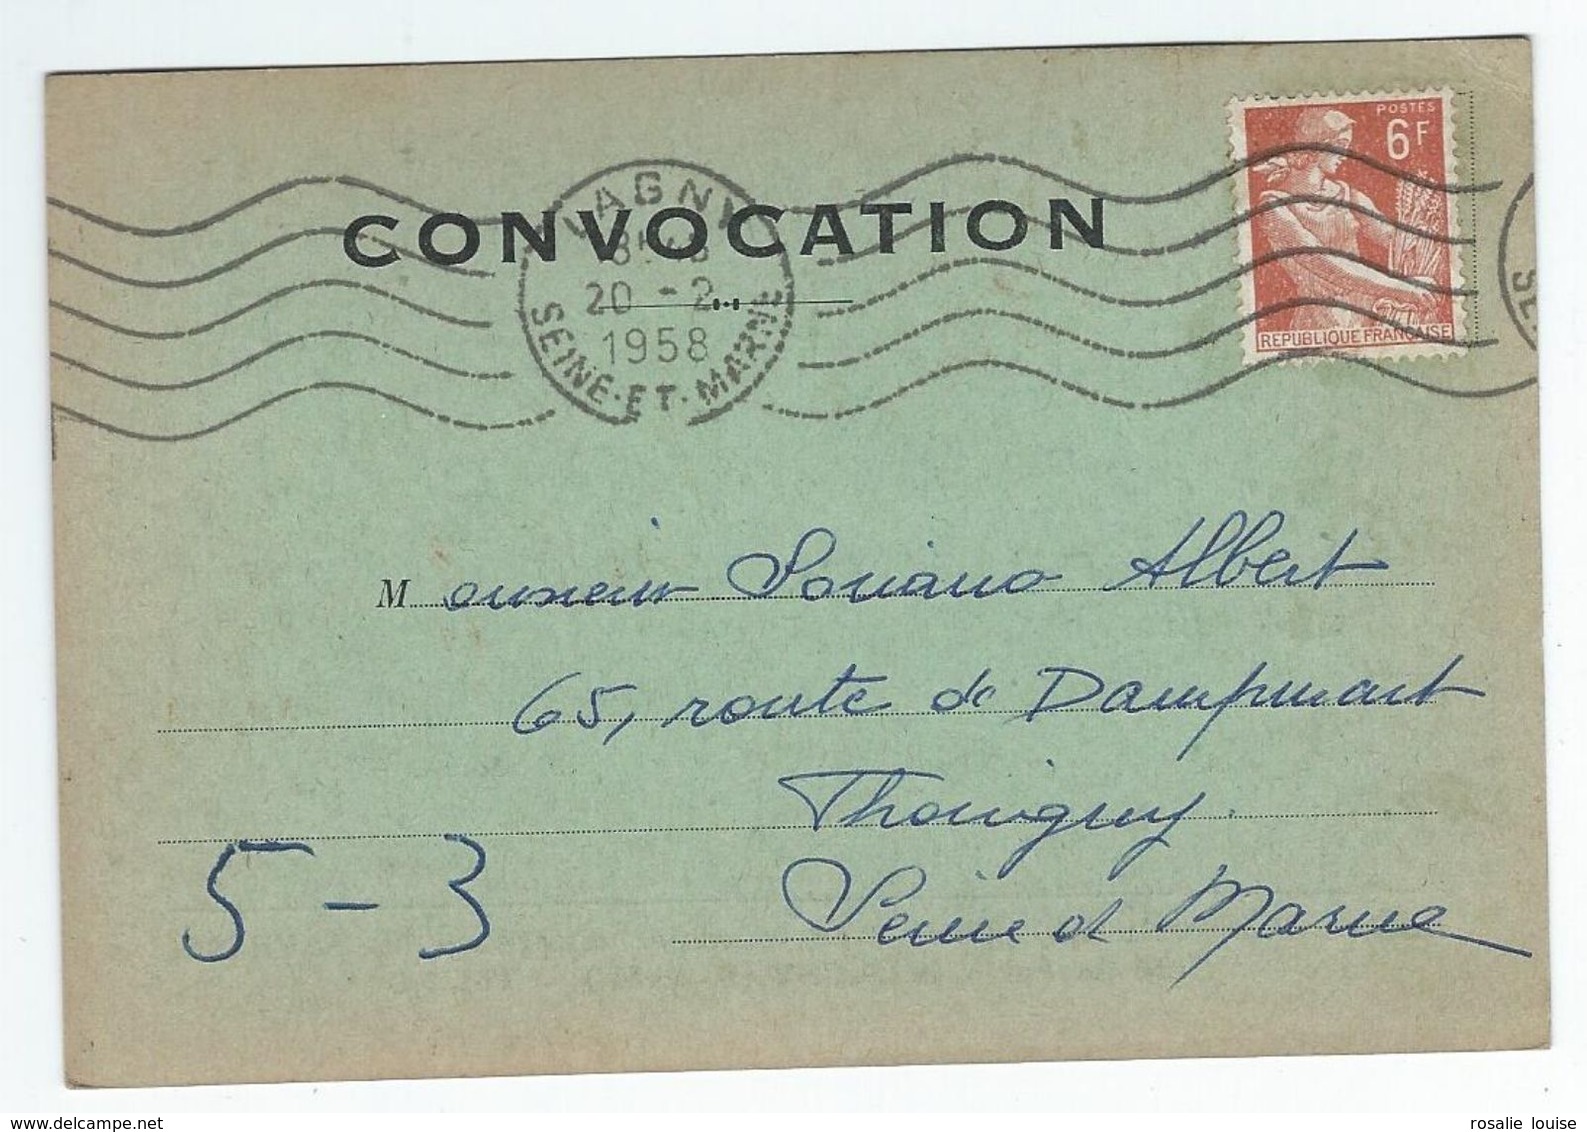 POSTES
6F
REPUBLIQUE FRANÇAISE
LAGNY
20 - 2
1958
SEINE-ET-MARNE
CONVOCATION
Monsieur Soriano Albert
65, route de Dampmart
Thorigny
Seine et Marne
5-3
rosalie louise
www.delcampe.net